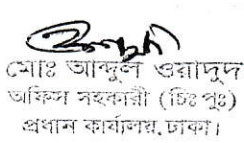 মোঃ আব্দুল ওয়াদুদ
অফিস সহকারী (চিঃ পুঃ)
প্রধান কার্যালয়, ঢাকা।